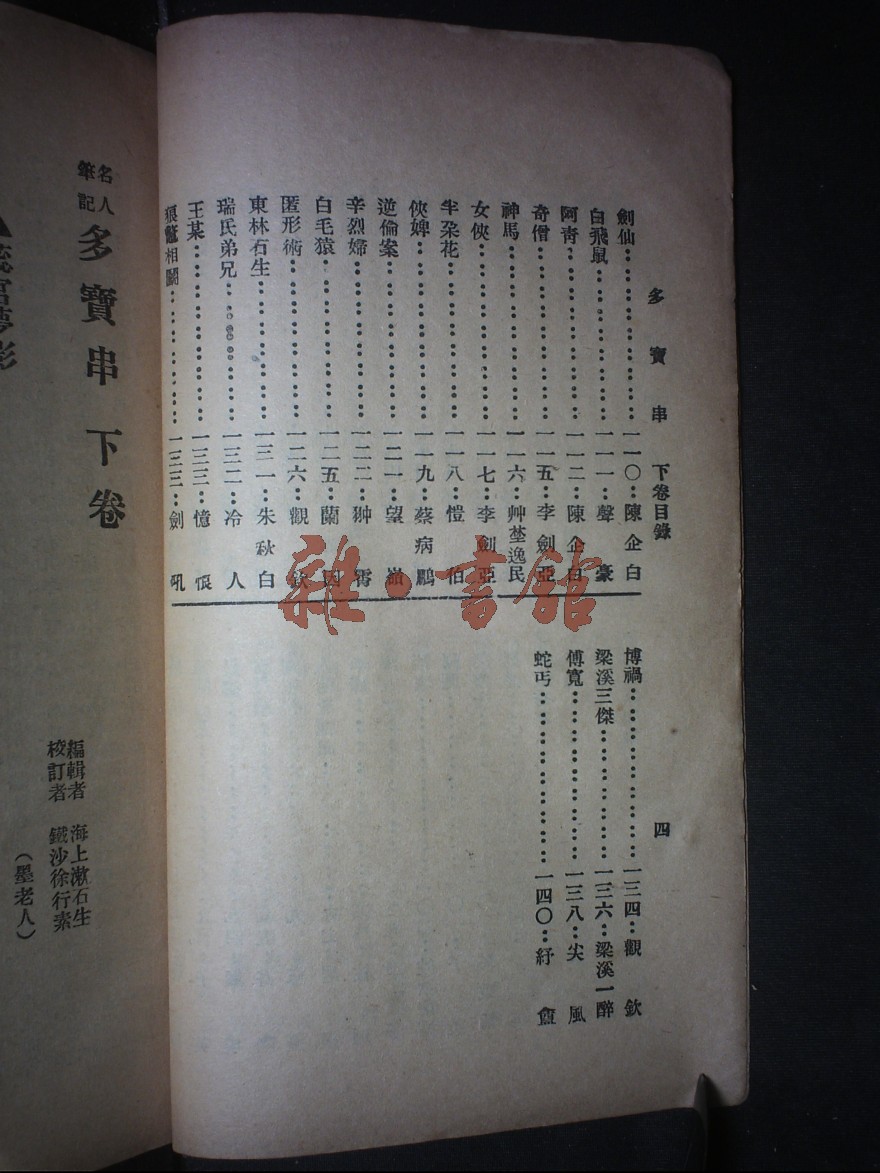 多寶串 下卷目錄 四
劍仙 一一〇 陳企白
白飛鼠 一一一 聲豪
阿青 一一二 陳企白
奇僧 一一五 李劍亞
神馬 一一六 艸埜逸民
女俠 一一七 李劍亞
半朶花 一一八 愷伯
俠婢 一一九 蔡病鵬
逆倫案 一二一 望
辛烈婦 一二二
白毛猿 一二五 蘭因
匿形術 一二六 觀欽
東林石生 一三一 朱秋白
瑞氏弟兄 一三二 冷人
王某 一三三 憶恨
狼鼈相鬭 一三三 劍吼
博禍 一三四 觀欽
梁溪三傑 一三六 梁溪一醉
傅寬 一三八 尖風
蛇丐 一四〇 紓盦
名人筆記 多寶串 下卷
編輯者 海上漱石生
校訂者 鐵沙徐行素
(墨老人)
雜·書館